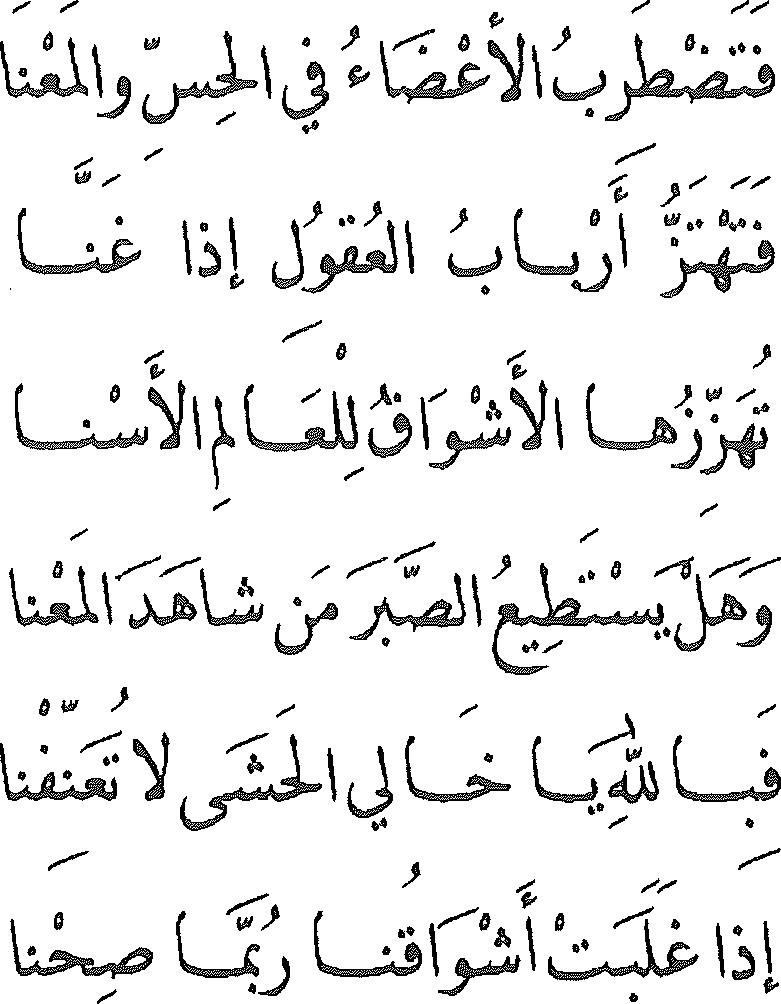 فَتَضْطَرِبُ الأَعْضَاءُ فِي الحِسِّ والمَعْنَا
فَتَهْتَزُّ أَرْبَابُ العُقُولُ إِذا غَنَّا
تُهَزِّزُها الأَشْوَاقُ لِلْعَالَمِ الأَسْنا
وَهَلْ يَسْتَطِيعُ الصَّبْرَ مَن شاهَدَ المَعْنا
فَبِاللهِ يَا خَالِي الحَشَى لا تُعَنِّفْنا
إِذَا غَلَبَتْ أَشْوَاقُنا رُبَّمَا صِحْنا